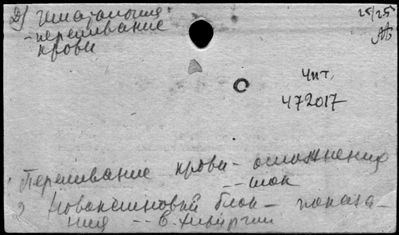 2) гематология
- переливание
крови
25/25
Чит.
472017
Переливание крови - осложнения
-- шок
2 Новокаиновый блок - показа-
ния -- в хирургии